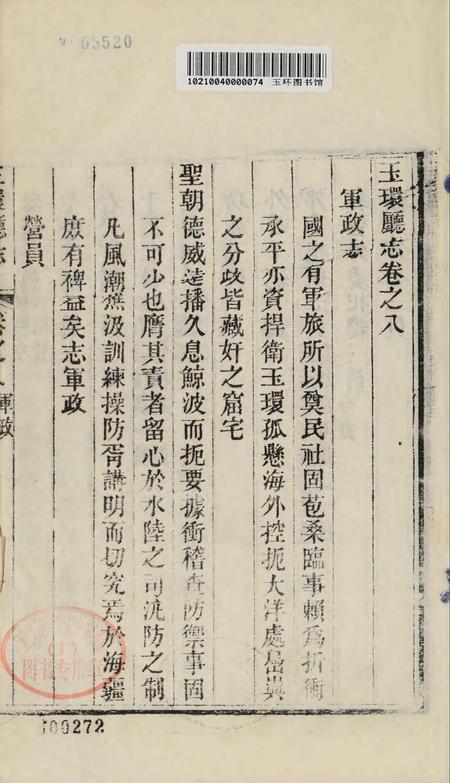 05520
10210040000074 玉环图书馆
玉環廳志卷之八
軍政志
國之有軍旅所以奠民社固苞桑臨事賴為折衝
承平亦資捍衛玉環孤懸海外控扼大洋處島嶼
之分歧皆藏奸之窟宅
聖朝德威遠播久息鯨波而扼要據衝稽查防禦事固
不可少也膺其責者留心於水陸之司汛防之制
凡風潮樵汲訓練操防胥講明而切究焉於海疆
庶有裨益矣志軍政
營員
玉環廳志 卷之八 軍政
(1)
100272